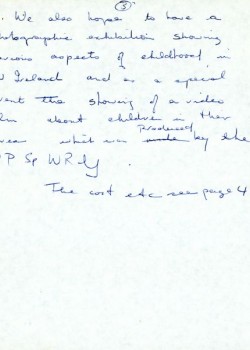 3
. We also hope to have a
hotographic exhibition showing
arious aspects of childhood in
Ireland and as a special
vent the showing of a video
about children in their
produced
which was by the
P Sp W R
The cost etc see page 4